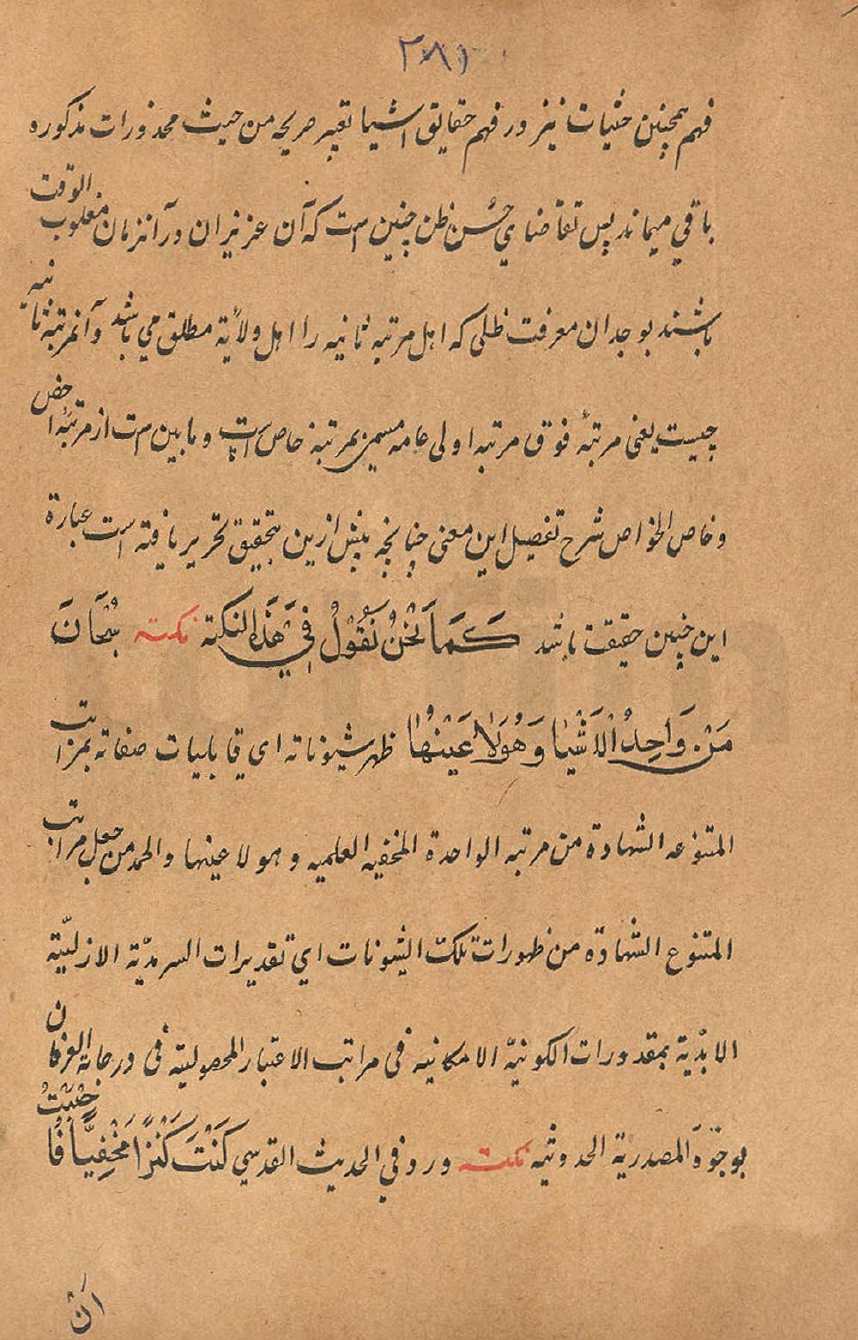 ۲۸۱
فهم همچنین خفیات نیز در فهم حقایق اشیا تعبیر صریحه من حیث محذورات مذکوره
باقی میماند پس تقاضای حُسن ظن چنین است که آن عزیزان در آنزمان مغلوب الوقت
باشند بوجدان معرفت ظلی که اهل مرتبه ثانیه را اهل ولایة مطلق می باشد و آنمرتبهٔ ثانیه
چیست یعنی مرتبهٔ فوق مرتبه اولی عامه مسمی بمرتبهٔ خاص است و ما بین است از مرتبهٔ اخص
و خاص الخواص شرح تفصیل این معنی چنانچه پیش ازین بتحقیق تحریر یافته است عبارة
این چنین حقیقت باشد کَمَا نَحْنُ نَقُوْلُ فِي هَذَهِ النکتة نکته سُبْحَانَ
مَنْ وَاحِدُ الْاَشْیَا وَهُوَ لَا عَیْنَهَا ظهر شیوناته ای قابلیات صفاته بمراتب
المتنوعه الشهادة من مرتبه الواحدة المخفیه العلمیه و هو لا عینها والحمد من جعل مراتب
المتنوع الشهادة من ظهورات تلک الشیونات ای تقدیرات السرمدیّة الازلیّة
الابدّیة بمقدورات الکونیّه الامکانیه فی مراتب الاعتبار المحصولیّة فی درجات العرفان
بوجوّه المصدریة الحدوثیه نکته ورد فی الحدیث القدسی کُنْتُ کَنْزًا مَخْفِیًّا فَاَحْبَبْتُ
اَنْ